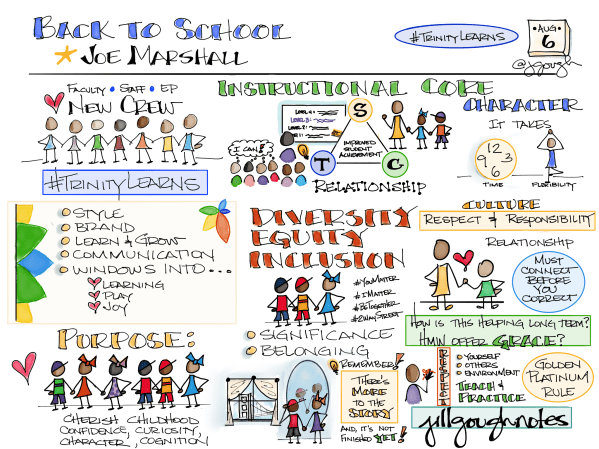 BACK TO SCHOOL
JOE MARSHALL
#TRINITYLEARNS
AUG
6
@jgough
FACULTY • STAFF • EP
NEW CREW
#TRINITYLEARNS
INSTRUCTIONAL CORE
LEVEL 4:
LEVEL 3:
LEVEL 2:
I CAN!
S
T
C
IMPROVED
STUDENT
ACHIEVEMENT
RELATIONSHIP
CHARACTER
IT TAKES
12
9 3
6
TIME
FLEXIBILITY
STYLE
BRAND
LEARN & GROW
COMMUNICATION
WINDOWS INTO...
LEARNING
PLAY
JOY
DIVERSITY
EQUITY
INCLUSION
#YOUMATTER
#IMATTER
#BETOGETHER
#2WAYSTREET
SIGNIFICANCE
BELONGING
CULTURE
RESPECT & RESPONSIBILITY
RELATIONSHIP
MUST
CONNECT
BEFORE
YOU
CORRECT
HOW IS THIS HELPING LONG TERM?
HMW OFFER GRACE?
PURPOSE:
CHERISH CHILDHOOD
CONFIDENCE, CURIOSITY,
CHARACTER, COGNITION
REMEMBER!
THERE'S
MORE
TO THE
STORY
AND, IT'S NOT
FINISHED YET!
RESPECT
YOURSELF
OTHERS
ENVIRONMENT
TEACH &
PRACTICE
GOLDEN
PLATINUM
RULE
jillgoughnotes